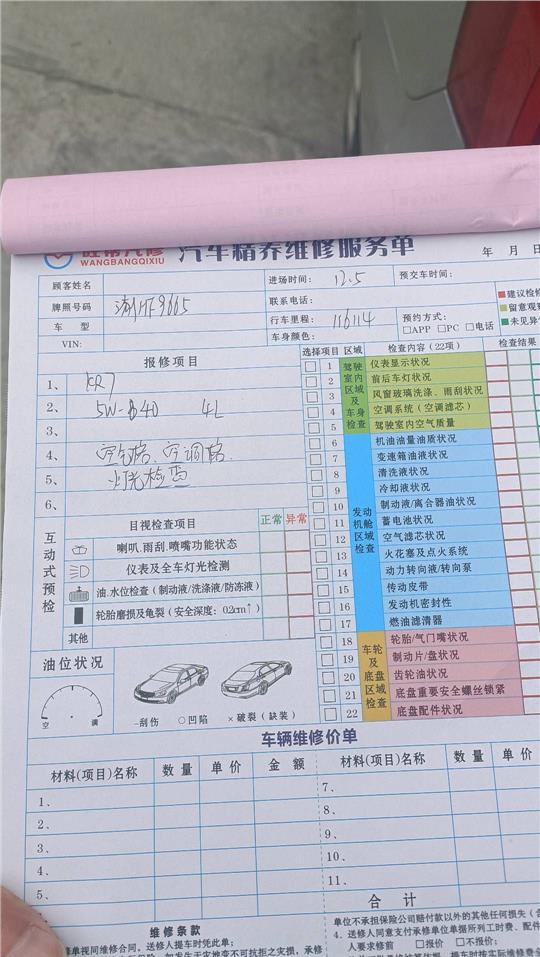 汽车精养维修服务单
WANGBANGQIXIU
年 月 日
顾客姓名
进场时间： 12.5 预交车时间：
牌照号码
联系电话：
车 型
行车里程： 116114 预约方式：
□APP □PC □电话
VIN:
车身颜色：
建议检修
留意观察
未见异常
报修项目
1、
2、 5W-40 4L
3、
4、 空气格、空调格
5、 灯光检查
6、
选择项目 区域 检查内容（22项） 检查结果
驾驶室内区域及车身检查
1 仪表显示状况
2 前后车灯状况
3 风窗玻璃洗涤、雨刮状况
4 空调系统（空调滤芯）
5 驾驶室内空气质量
发动机舱区域检查
6 机油油量油质状况
7 变速箱油液状况
8 清洗液状况
9 冷却液状况
10 制动液/离合器油状况
11 蓄电池状况
12 空气滤芯状况
13 火花塞及点火系统
14 动力转向液/转向泵
15 传动皮带
16 发动机密封性
17 燃油滤清器
车轮及底盘区域检查
18 轮胎/气门嘴状况
19 制动片/盘状况
20 齿轮油状况
21 底盘重要安全螺丝锁紧
22 底盘配件状况
互动式预检
目视检查项目 正常 异常
喇叭.雨刮.喷嘴功能状态
仪表及全车灯光检测
油.水位检查（制动液/洗涤液/防冻液）
轮胎磨损及龟裂（安全深度：0.2cm↑）
其他
油位状况
空 满
-刮伤 ○凹陷 ×破裂（缺装）
车辆维修价单
材料(项目)名称 数 量 单 价 金 额 材料(项目)名称 数 量 单 价
1、 7、
2、 8、
3、 9、
4、 10、
5、 11、
合 计
维修条款
单视同维修合同，送修人提车时凭此单；
单位不承担保险公司赔付款以外的其他任何损失
4、送修人同意支付承修单位据所列工时费、配件
人要求修前 □报价 □不报价；